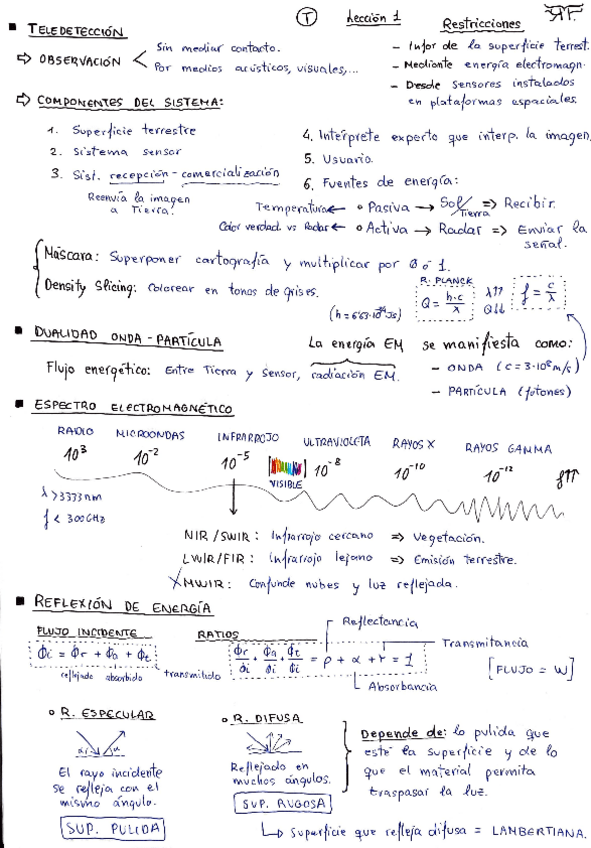 T Lección 1
■ TELEDETECCIÓN
⇨ OBSERVACIÓN < Sin mediar contacto.
Por medios acústicos, visuales,...
Restricciones
- Infor de la superficie terrest.
- Mediante energía electromagn.
- Desde sensores instalados
en plataformas espaciales.
⇨ COMPONENTES DEL SISTEMA:
1. Superficie terrestre
2. Sistema sensor
3. Sist. recepción - comercialización
Reenvía la imagen
a Tierra.
4. Intérprete experto que interp. la imagen.
5. Usuario
6. Fuentes de energía:
Temperatura ← • Pasiva → Sol/Tierra => Recibir.
Color verdad. vs Radar ← • Activa → Radar => Enviar la
señal.
Máscara: Superponer cartografía y multiplicar por 0 ó 1.
Density Slicing: Colorear en tonos de grises.
(h = 6'63·10⁻³⁴ Js)
R. PLANCK
Q = h·c/λ
λ↑↑
Q↓↓
f = c/λ
■ DUALIDAD ONDA - PARTÍCULA
Flujo energético: Entre Tierra y Sensor, radiación EM.
La energía EM se manifiesta como:
- ONDA (c = 3·10⁸ m/s)
- PARTÍCULA (fotones)
■ ESPECTRO ELECTROMAGNÉTICO
RADIO MICROONDAS INFRARROJO ULTRAVIOLETA RAYOS X RAYOS GAMMA
10³ 10⁻² 10⁻⁵ 10⁻⁸ 10⁻¹⁰ 10⁻¹² f↑↑
VISIBLE
λ > 3333 nm
f < 300 GHz
NIR / SWIR: Infrarrojo cercano => Vegetación.
LWIR/FIR: Infrarrojo lejano => Emisión terrestre.
MWIR: Confunde nubes y luz reflejada.
■ REFLEXIÓN DE ENERGÍA
FLUJO INCIDENTE
Φi = Φr + Φa + Φt
reflejado absorbido transmitido
RATIOS
Φr/Φi · Φa/Φi · Φt/Φi = ρ + α + τ = 1
Reflectancia
Transmitancia
Absorbancia
[FLUJO = W]
o R. ESPECULAR
El rayo incidente
se refleja con el
mismo ángulo.
SUP. PULIDA
o R. DIFUSA
Reflejado en
muchos ángulos.
SUP. RUGOSA
Depende de: lo pulida que
esté la superficie y de lo
que el material permita
traspasar la luz.
↳ Superficie que refleja difusa = LAMBERTIANA.